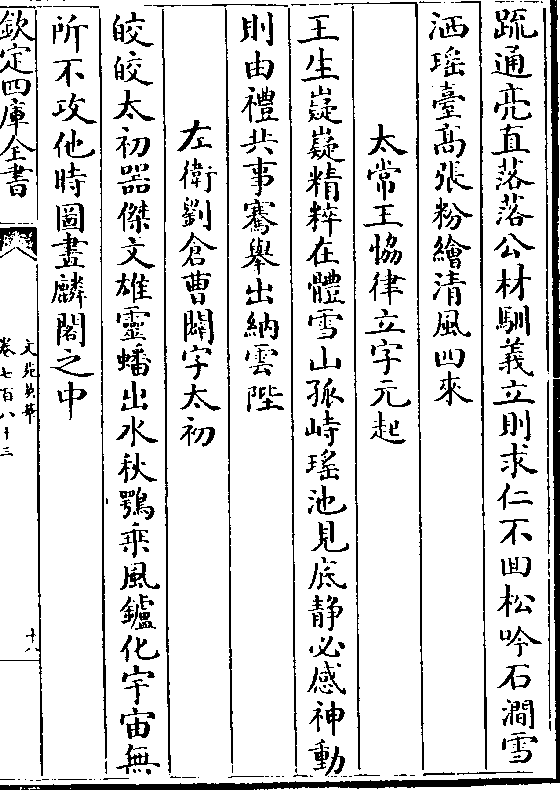 疏通亮直落落公材馴義立則求仁不回松吟石澗雪
洒瑶臺髙張粉繪清風四來
太常王協律立字元起
王生嶷嶷精粹在體雪山孤峙瑶池見底静必感神動
則由禮共事騫舉出納雲陛
左衛劉倉曹闢字太初
皎皎太初器傑文雄靈蟠出水秋鶚乗風鑪化宇宙無
所不攻他時圖畫麟閣之中
欽定四庫全書
文苑英華
卷七百八十三
十八